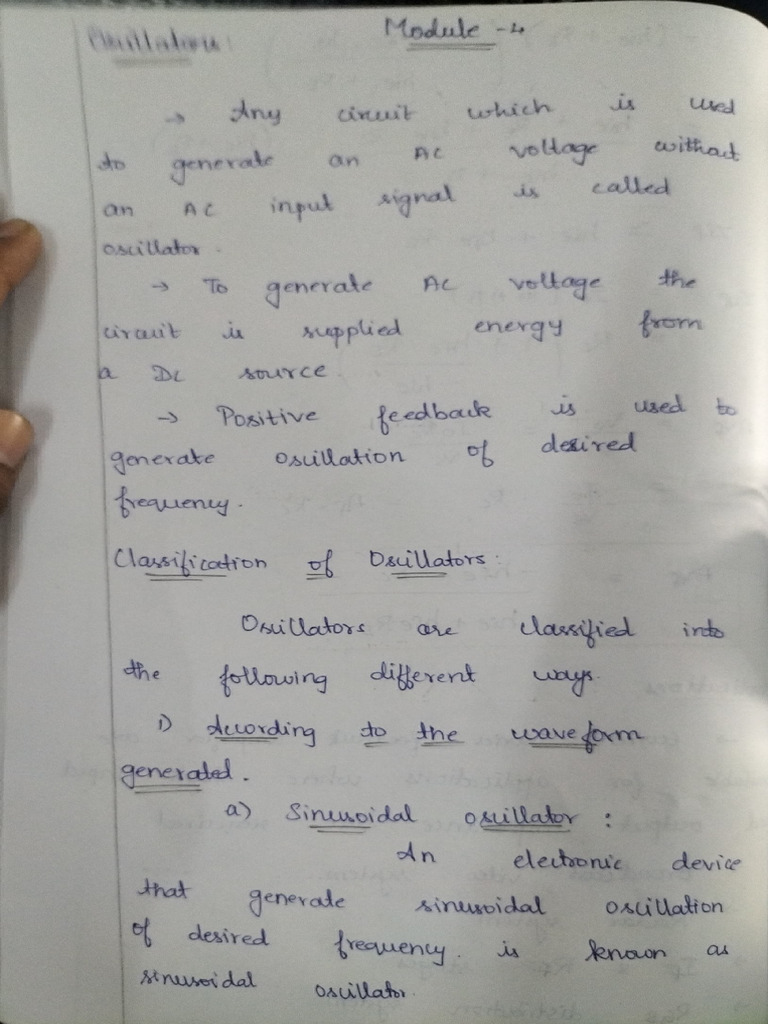 Module - 4
Oscillators:
→ Any circuit which is used
to generate an AC voltage without
an AC input signal is called
oscillator.
→ To generate AC voltage the
circuit is supplied energy from
a DC source
→ Positive feedback is used to
generate oscillation of desired
frequency.
Classification of Oscillators:
Oscillators are classified into
the following different ways.
1) According to the waveform
generated.
a) Sinusoidal oscillator :
An electronic device
that generate sinusoidal oscillation
of desired frequency. is known as
sinusoidal oscillator.